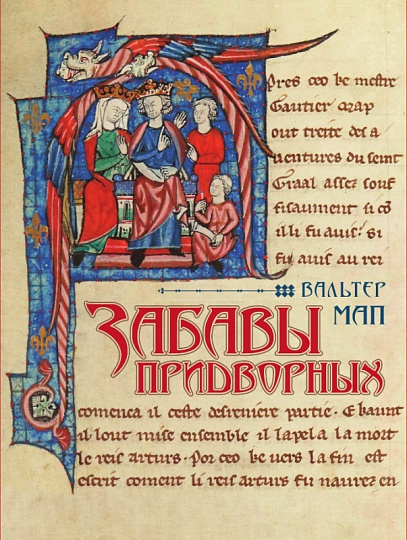 Pres ceo ke mestre
Gautier map
out treite des a
uentures du seint
Graal assez souf
fisaument si co
il li fu auis. si
fu auis au rei
ВАЛЬТЕР
МАП
ЗАБАВЫ
ПРИДВОРНЫХ
comenca il ceste desreniere partie. E kaunt
il lout mise ensemble il lapela la mort
le reis arturs. Por ceo ke uers la fin est
escrit coment li reis arturs fu naurez en